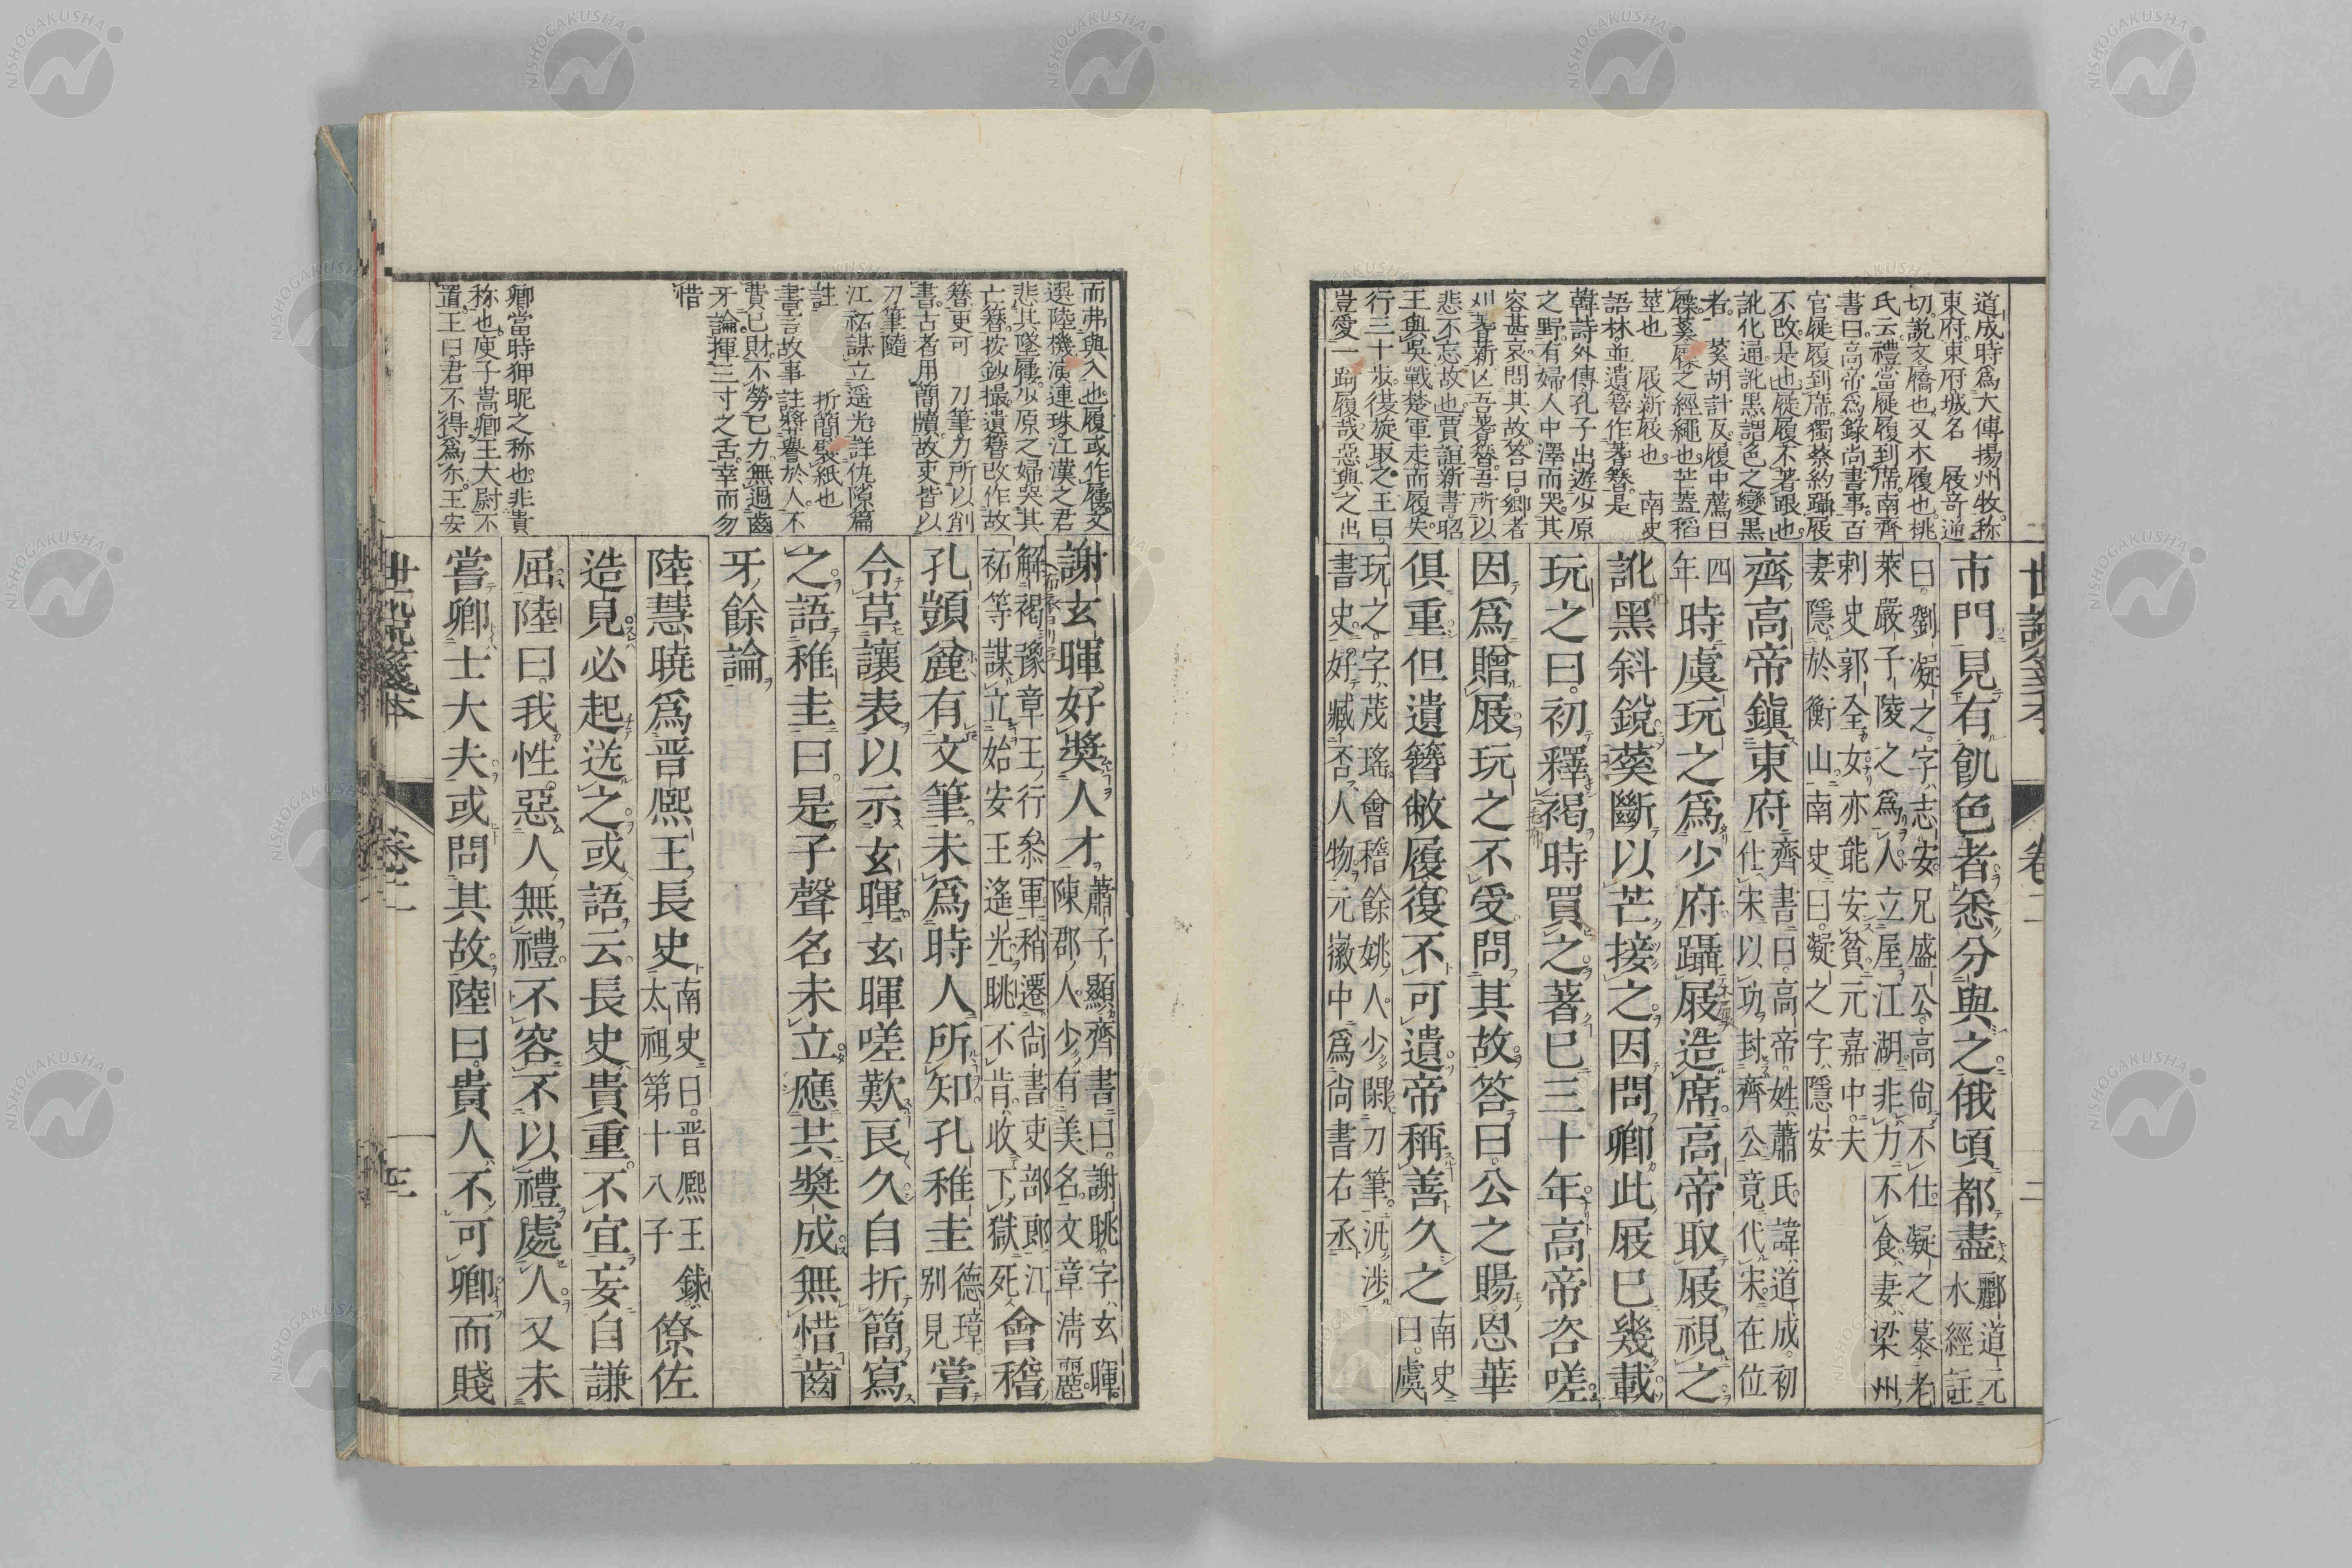 道成時爲大傅揚州牧称
東府東府城名　屐竒逆
切説文屩也又木履也桃
氏云禮當屣履到席南齊
書曰高帝爲錄尚書事百
官屣履到席獨蔡約躡屐
不改是也屣履不著跟也
訛化通訛黒謂色之變黒
者　䒨胡計反履中薦曰
屧䒨屐之經繩也芒蓋稻
莖也　屐新屐也　南史
語林並遺簪作著簪是
韓詩外傳孔子出遊少原
之野有婦人中澤而哭其
容甚哀問其故答曰鄉者
刈蓍薪亾吾蓍簪吾所以
悲不忘故也賈誼新書昭
王與吳戰楚軍走而履失
行三十步復旋取之王曰
豈愛一踦履哉惡與之出
市門見有飢色者悉分與之俄頃都盡酈道元水經註
曰劉凝之字志安兄盛公高尚不仕凝之慕老
萊嚴子陵之爲人立屋江湖非力不食妻梁州
刺史郭全女亦能安貧元嘉中夫
妻隱於衡山南史曰凝之字隱安
齊高帝鎭東府齊書曰高帝姓蕭氏諱道成初仕宋以功封齊公竟代宋在位
四年時虞玩之爲少府躡屐造席高帝取屐視之
訛黑斜銳䒨斷以芒接之因問卿此屐已幾載
玩之曰初釋褐時買之著已三十年高帝咨嗟
因爲贈屐玩之不受問其故答曰公之賜恩華
俱重但遺簪敝履復不可遺帝稱善久之南史曰虞
玩之字茂瑤會稽餘姚人少閑刀筆汎渉
書史好臧否人物元徽中爲尚書右丞
世説箋本　卷二　二
而弗與入也履或作屨文
選陸機演連珠江漢之君
悲其墜屨少原之婦哭其
亡簪按鈔撮遺簪改作故
簪更可　刀筆力所以削
書古者用簡牘故吏皆以
刀筆隨
江祏謀立遥光詳仇隙篇
註　　　折簡裂紙也
書言故事註將譽於人不
費已財不勞已力無過齒
牙論揮三寸之舌幸而勿
惜
卿當時狎昵之称也非貴
称也庾子嵩卿王大尉不
置王曰君不得爲尓王安
謝玄暉好獎人才蕭子顯齊書曰謝眺字玄暉陳郡人少有美名文章淸麗
解褐豫章王行叅軍稍遷尚書吏部郎江
祏等謀立始安王遙光眺不肯收下獄死會稽
孔顗麄有文筆未爲時人所知孔稚圭德璋別見嘗
令草讓表以示玄暉玄暉嗟歎良久自折簡寫
之語稚圭曰是子聲名未立應共獎成無惜齒
牙餘論
陸慧曉爲晋熈王長史南史曰晋熈王銶太祖第十八子僚佐
造見必起送之或語云長史貴重不宜妄自謙
屈陸曰我性惡人無禮不容不以禮處人又未
嘗卿士大夫或問其故陸曰貴人不可卿而賤
世説箋本　卷二　三